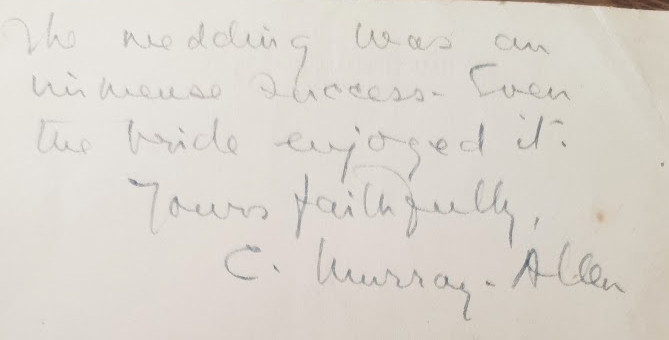 The wedding was an
immense success - Even
the bride enjoyed it.
Yours faithfully,
C. Murray-Allen